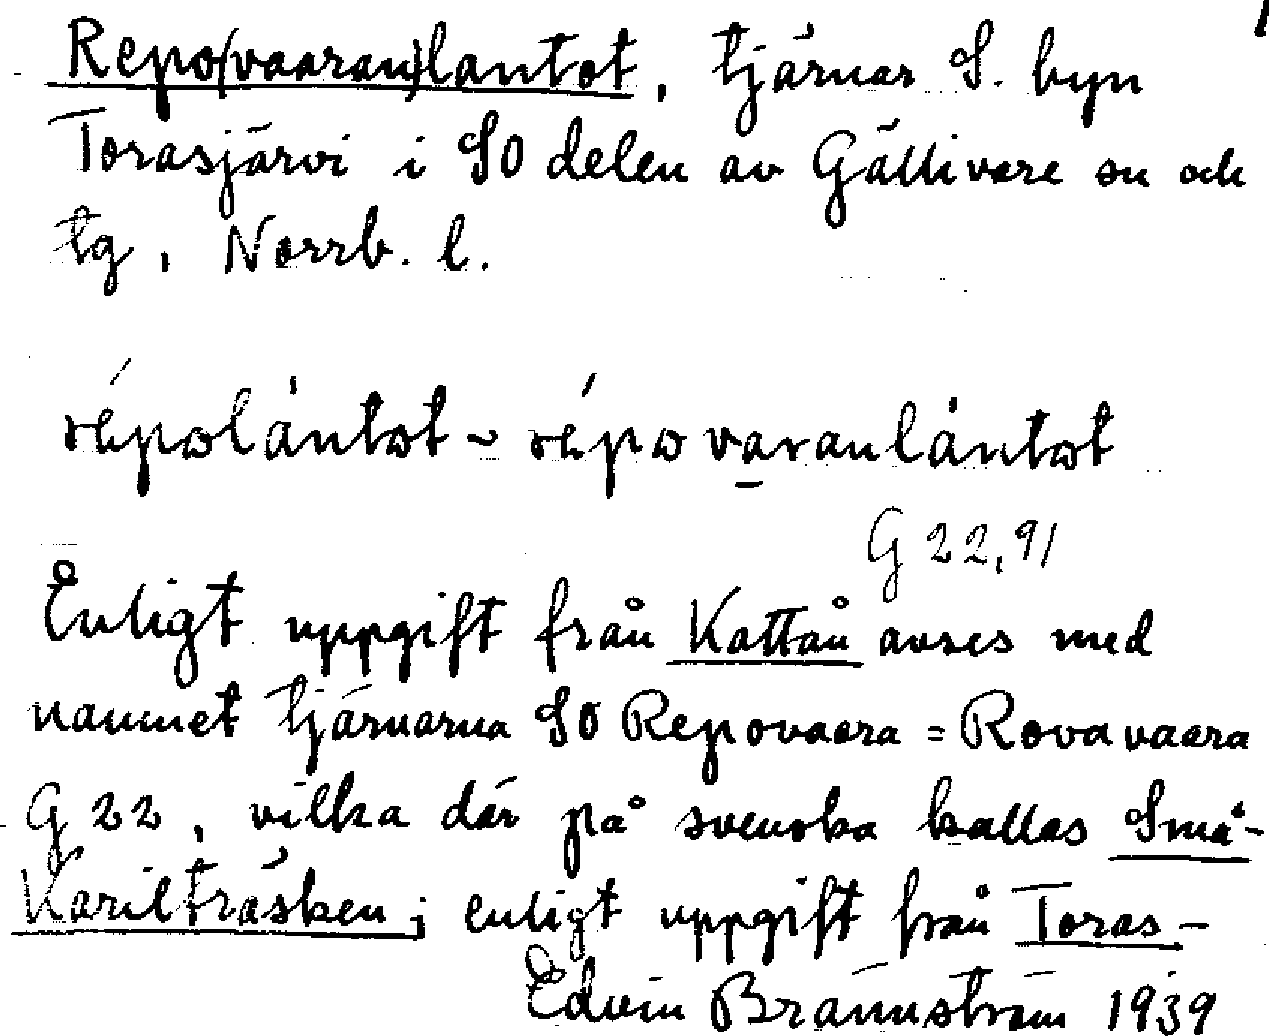 Repo(vaaran)lantot, tjärnar S. byn
Torasjärvi i SO delen av Gällivare sn och
tg, Norrb. l.
répolántot ~ répovaranlántot
G 22,91
Enligt uppgift från Kattån avses med
namnet tjärnarna SO Repovaara = Rovavaara
G 22, vilka där på svenska kallas Små-
Kariträsken; enligt uppgift från Toras-
Edvin Brännström 1939